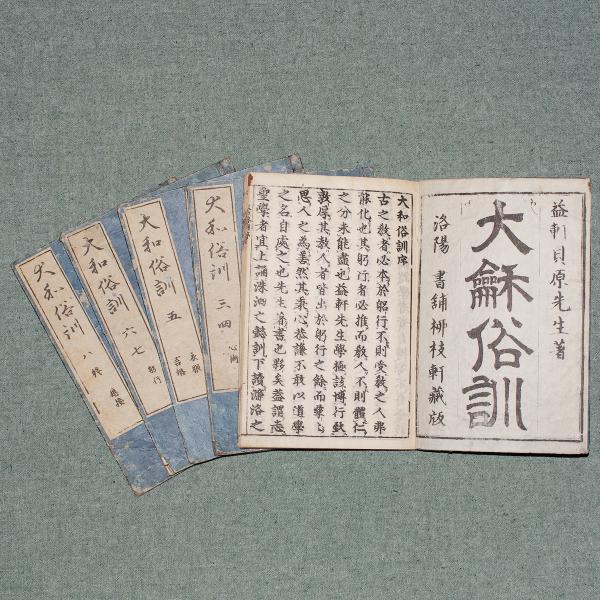 益軒貝原先生著
大龢俗訓
洛陽 書鋪柳枝軒藏版
大和俗訓序
古之教者必本於躬行不則受教之人弗
能化也其躬行者必推而教人不則體仁
之分未能盡也益軒先生學極該博行致
敦厚其教人者皆出於躬行之餘而樂
思人之為善然其秉心恭謙不敢以道學
之名自處之也先生著書也夥矣蓋謂志
聖學者宜上誦洙泗之懿訓下讀濂洛之
大和俗訓 三 四 心術
大和俗訓 五 衣服 言語
大和俗訓 六 七 躬行
大和俗訓 八 終 應接